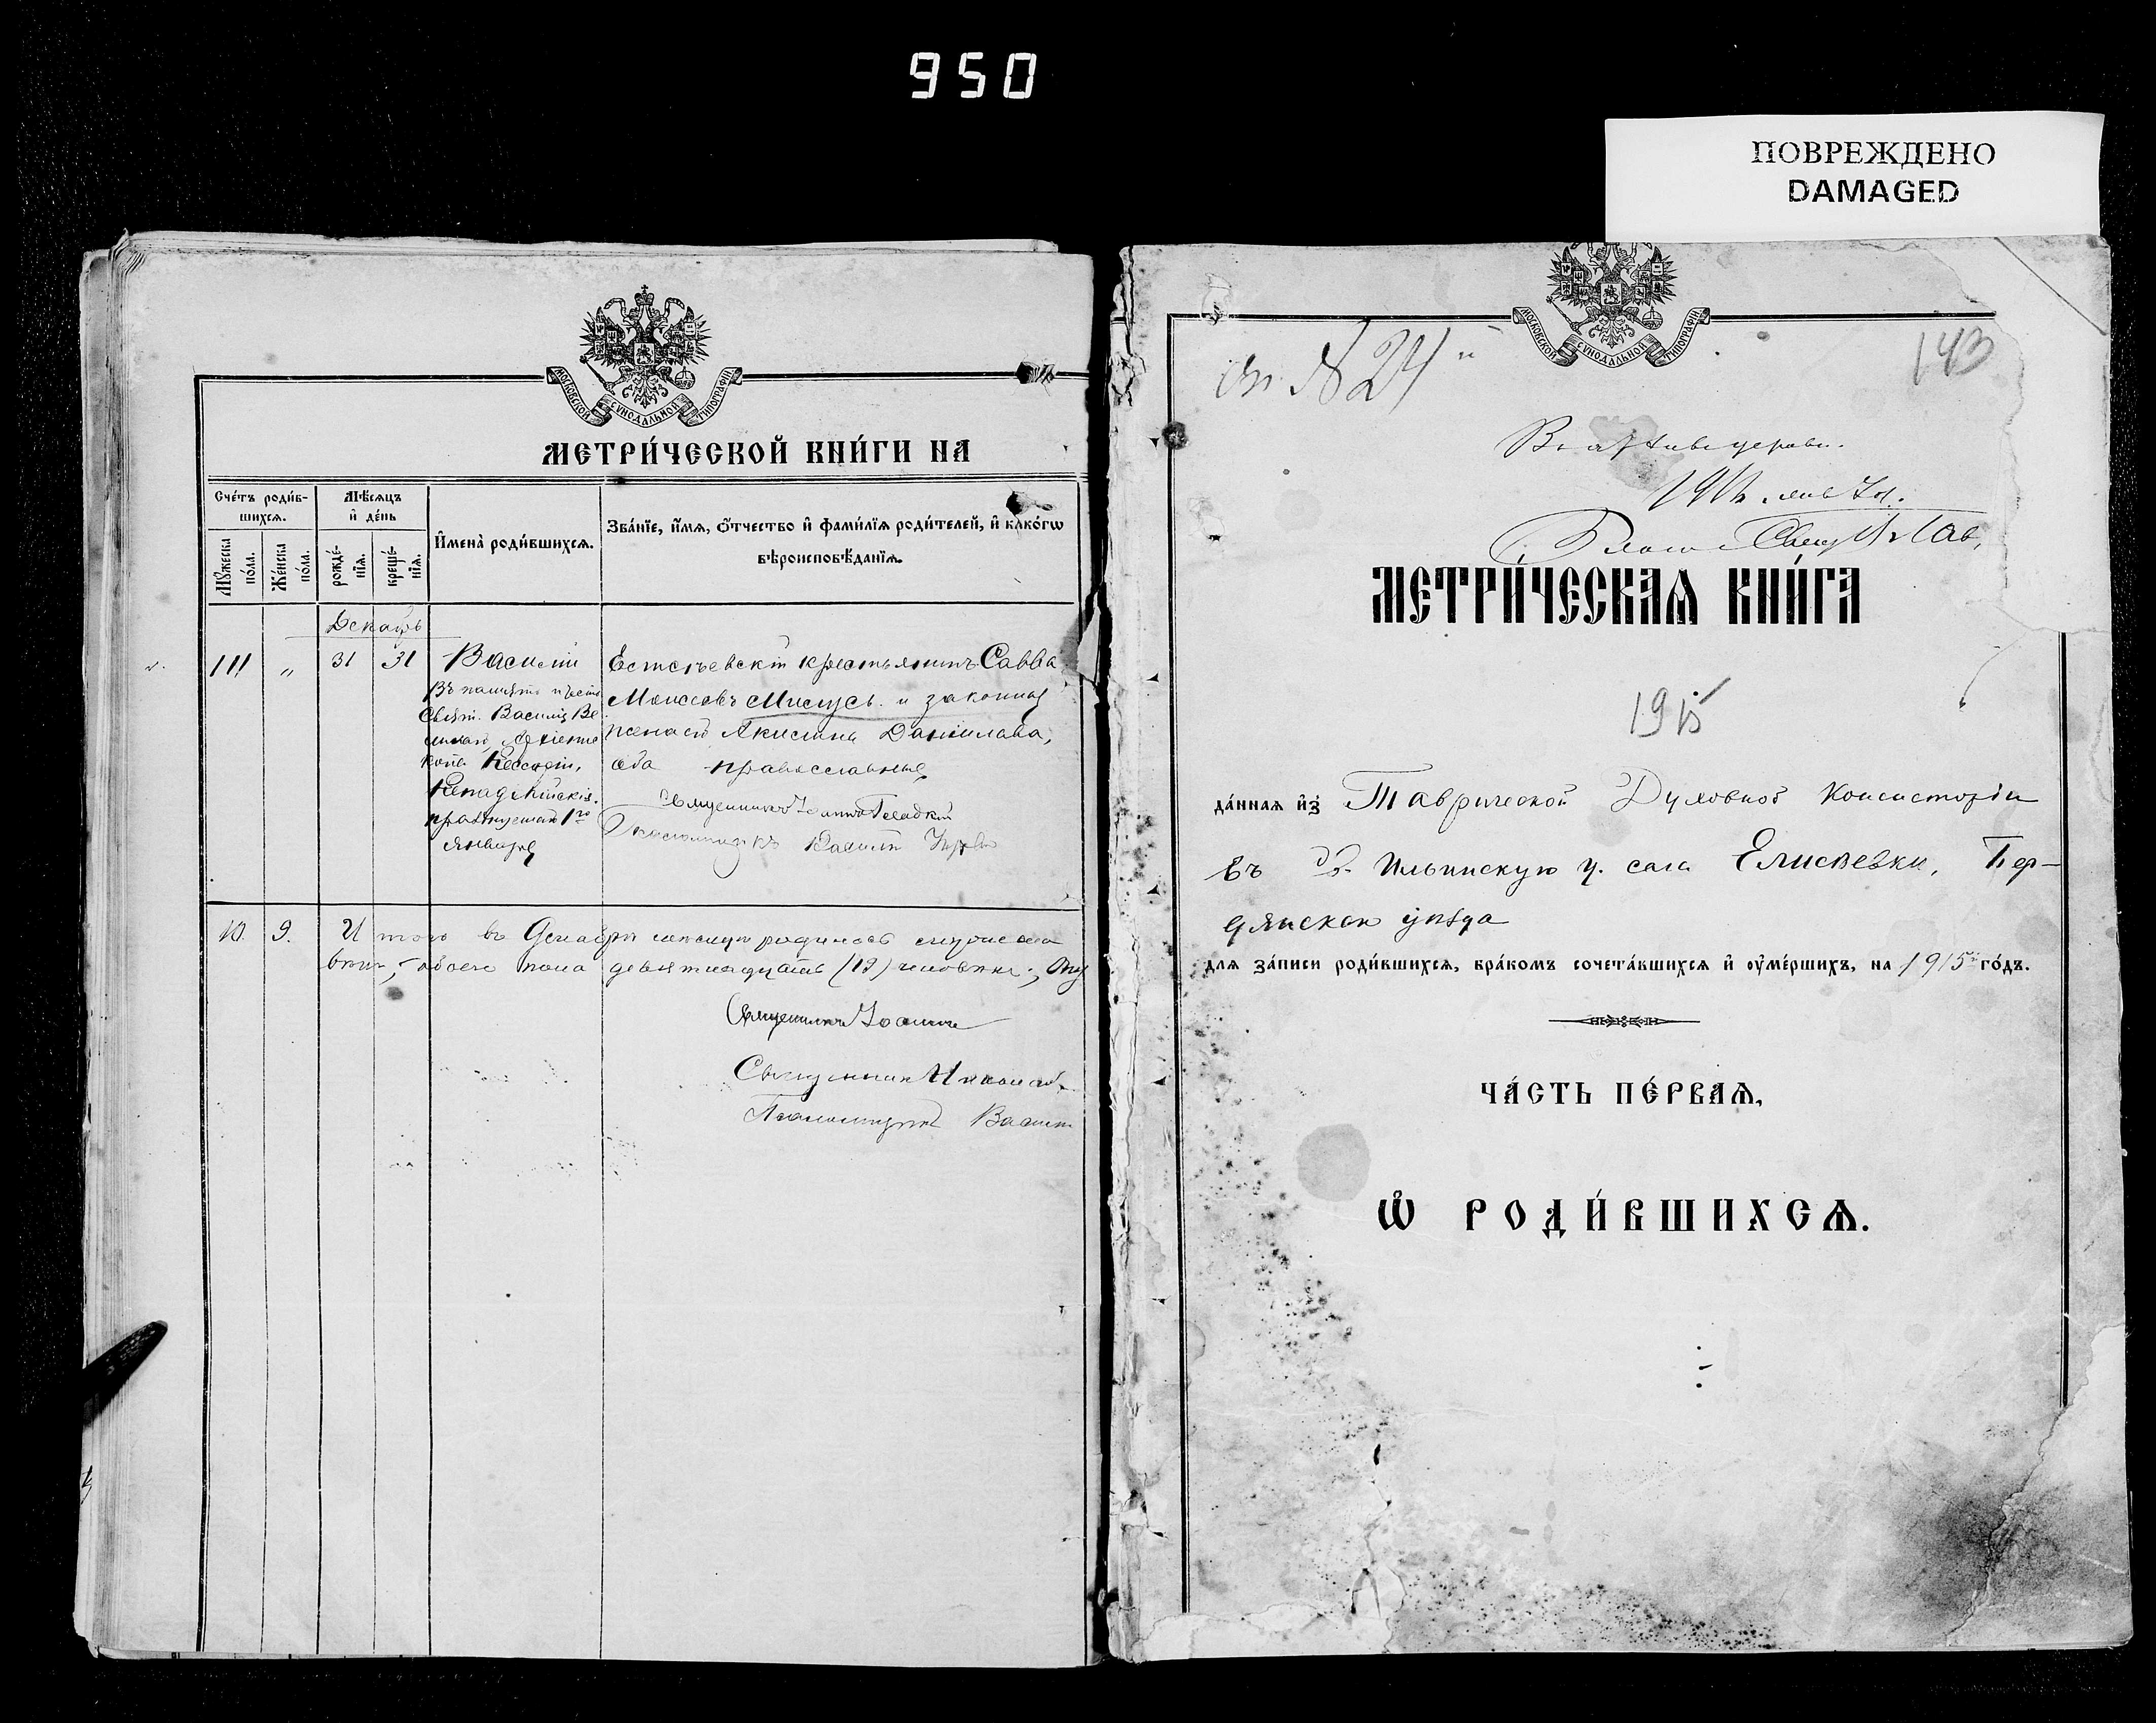 950
ПОВРЕЖДЕНО
DAMAGED
МОСКОВСКОЙ СУНОДАЛЬНОЙ ТИПОГРАФІИ
МЕТРИ́ЧЕСКОЙ КНИ́ГИ НА
Сче́тъ роди́в-
шихсѧ.
Мѣ́сѧцъ
и҆ де́нь
Мꙋ́жеска
по́ла.
Же́нска
по́ла.
рожде́-
нїѧ.
креще́-
нїѧ.
И҆мена̀ роди́вшихсѧ.
Зва́нїе, и҆́мѧ, ѻ҆́тчество и҆ фами́лїѧ роди́телей, и҆ како́гѡ
вѣроисповѣ́данїѧ.
Декабрь
111 „ 31 31 Василій
Въ память и честь
Свят. Василія Ве
ликаго, Архіепис
копа Кессаріи,
Кападокійскія.
празднуемаго 1го
Января
Естогъевскій крестьянинъ Савва
Моисеевъ Мисусь. и законная
жена его Акилина Даніилова,
оба православные
Священникъ Іоаннъ Гладкій
Псаломщикъ Василій
10. 9. И того въ Декабрѣ мѣсяцѣ родилось мужеска
обоего пола девятнадцать (19) человѣкъ.
Священникъ Іоаннъ
Священник Николай
Псаломщикъ Василій
МОСКОВСКОЙ СУНОДАЛЬНОЙ ТИПОГРАФІИ
№ 24
143
МЕТРИ́ЧЕСКАѦ КНИ́ГА
1915
да́ннаѧ и҆з̾ Таврической Духовной Консисторіи
въ Св. Ильинскую ц. села Елисѣевки, Бер-
дянскаго уѣзда
для за́писи роди́вшихсѧ, бра́комъ сочета́вшихсѧ и҆ ᲂу҆ме́ршихъ, на 1915й го́дъ.
ЧА́СТЬ ПЕ́РВАѦ,
Ѡ҆ РОДИ́ВШИХСѦ.